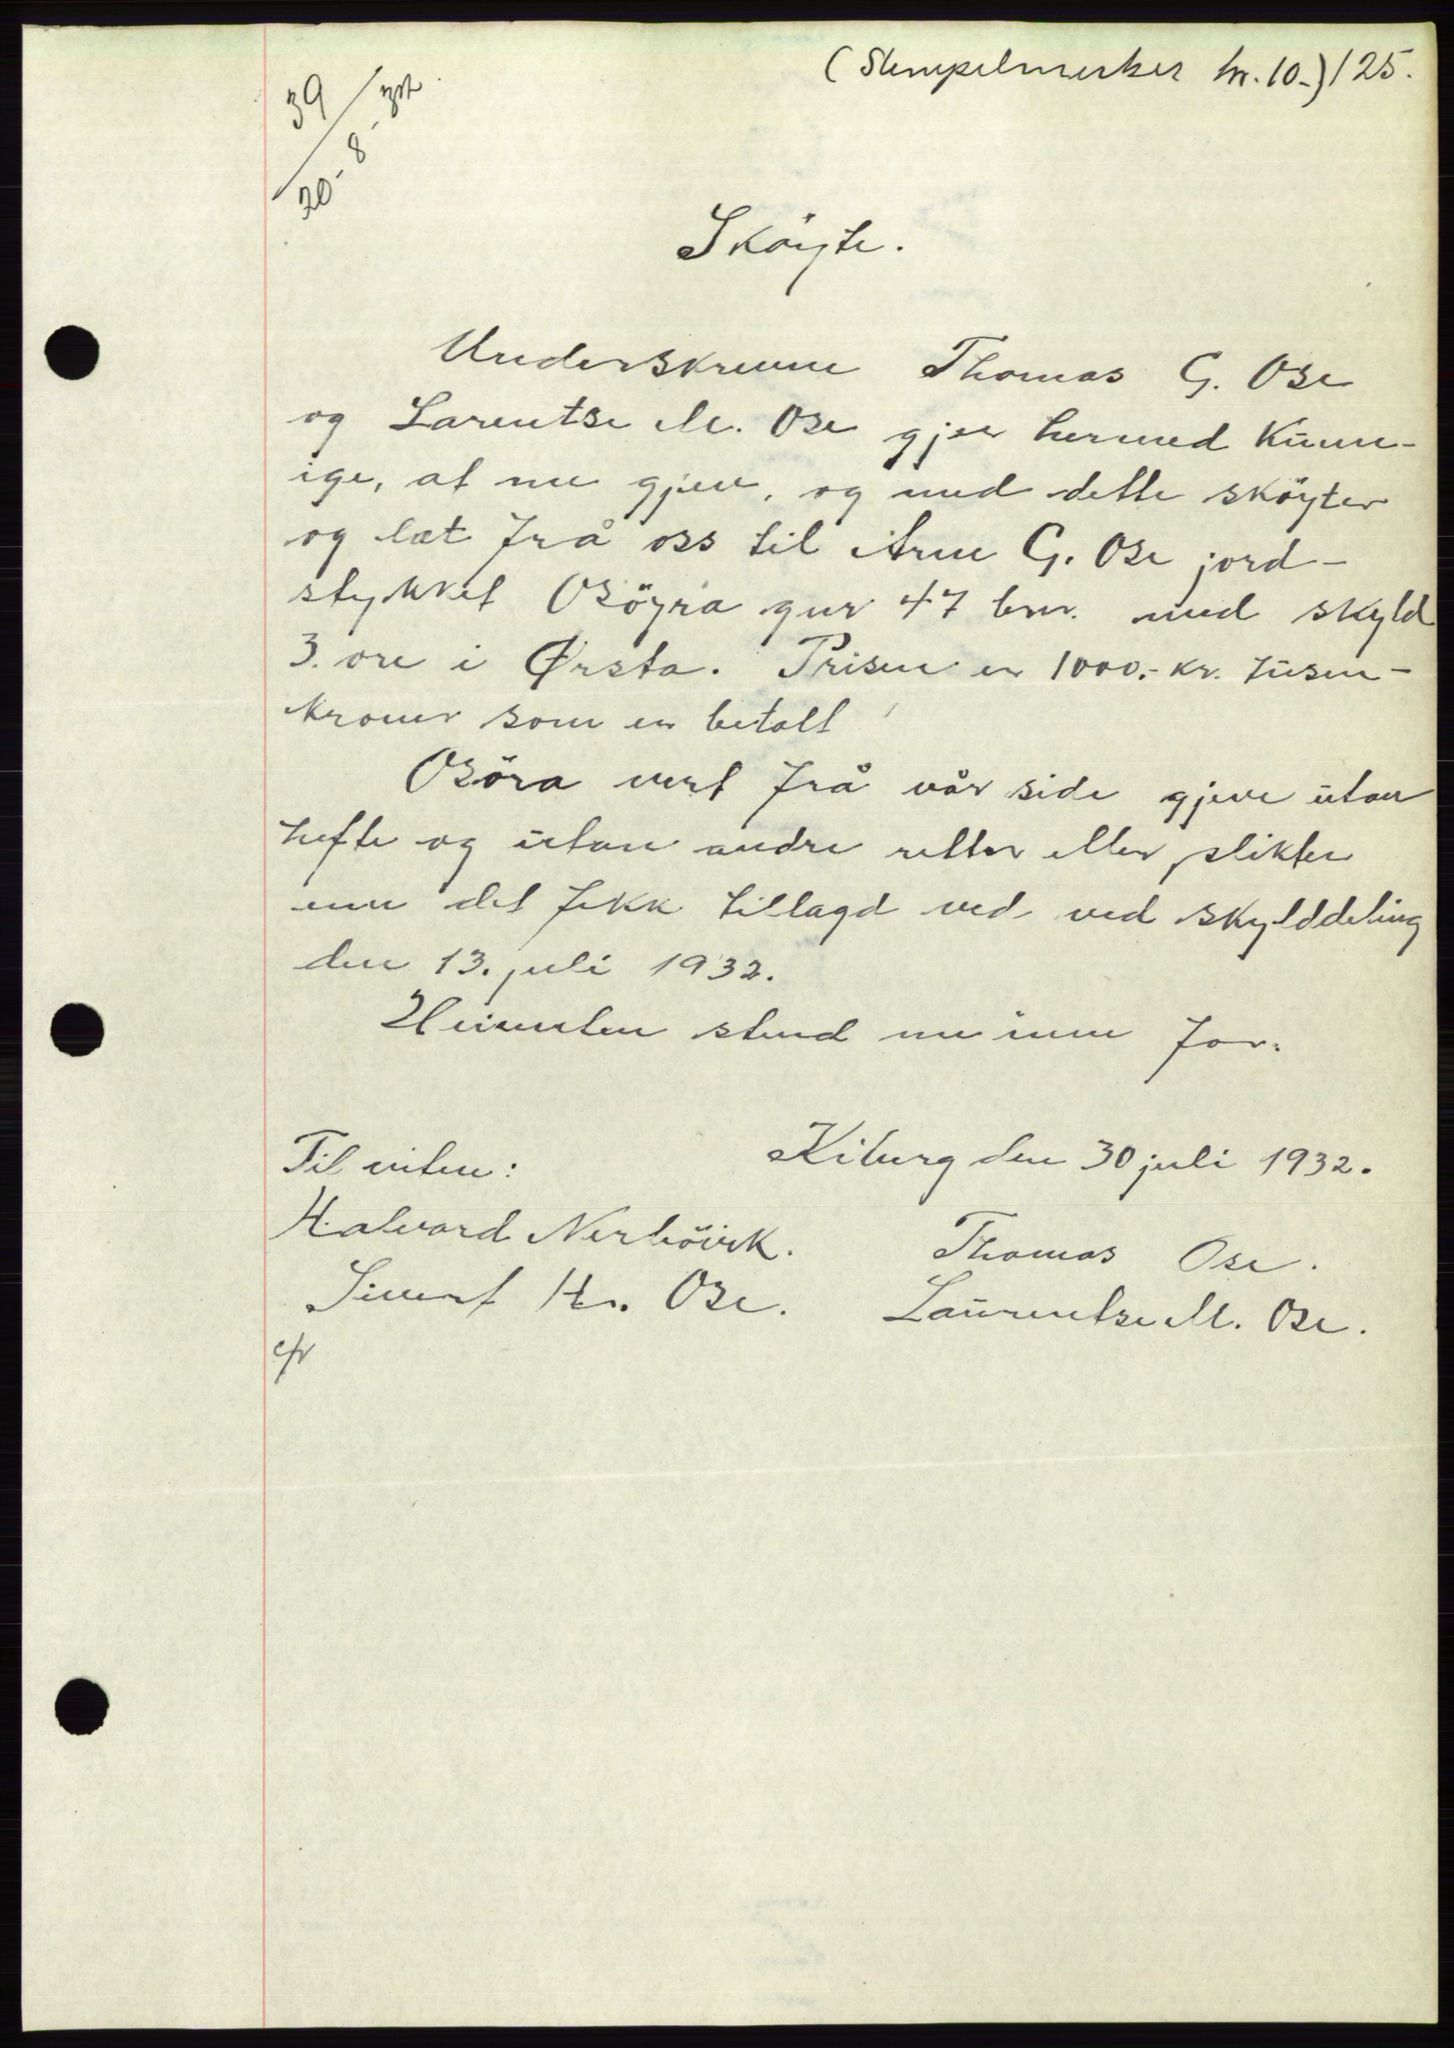 (Stempelmerker kr. 10.-) 125.
39
20-8-32
Sköyte.
Underskrevne Thomas G. Ose
og Larentse M. Ose gjer hermed kunn-
ige, at me gjev, og med dette sköyter
og læt frå oss til Arne G. Ose jord-
stykket Osöyra gnr 47 bnr. med skyld
3. øre i Ørsta. Prisen er 1000.- kr. tusen-
kroner som er betalt
Osöra vert frå vår side gjeve utan
hefte og utan andre retter eller plikter
enn det fekk tillagd ved ved skylddeling
den 13. juli 1932.
Heimelen stend me inne for.
Til viten:
Kiburg den 30 juli 1932.
Halvard Nerhövik.
Thomas Ose.
Sivert H. Ose.
Laurentse M. Ose.